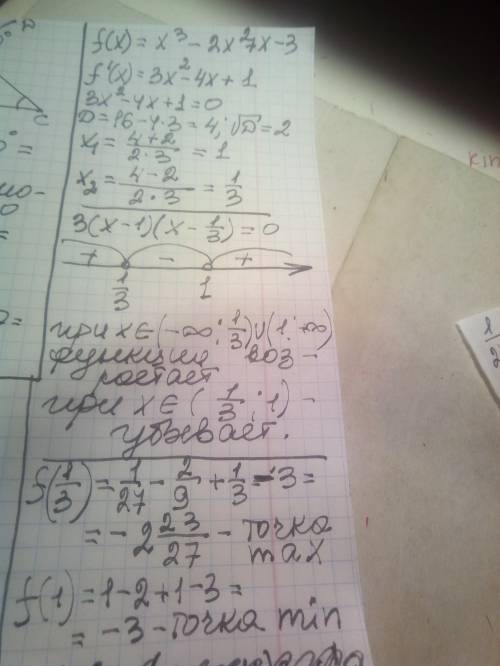 f(x) = x³ - 2x² + x - 3
f'(x) = 3x² - 4x + 1
3x² - 4x + 1 = 0
D = 16 - 4·3 = 4; √D = 2
x₁ = (4+2)/(2·3) = 1
x₂ = (4-2)/(2·3) = 1/3
3(x-1)(x-1/3) = 0
+ - +
1/3 1
при x∈(-∞; 1/3)∪(1; +∞)
функция воз-
ростает
при x∈(1/3; 1) -
убывает.
f(1/3) = 1/27 - 2/9 + 1/3 - 3 =
= -2 23/27 - точка
max
f(1) = 1-2+1-3 =
= -3 - точка min